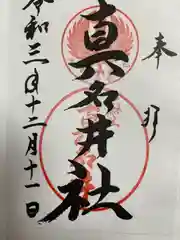 奉
真名井社
令和三年十二月十一日